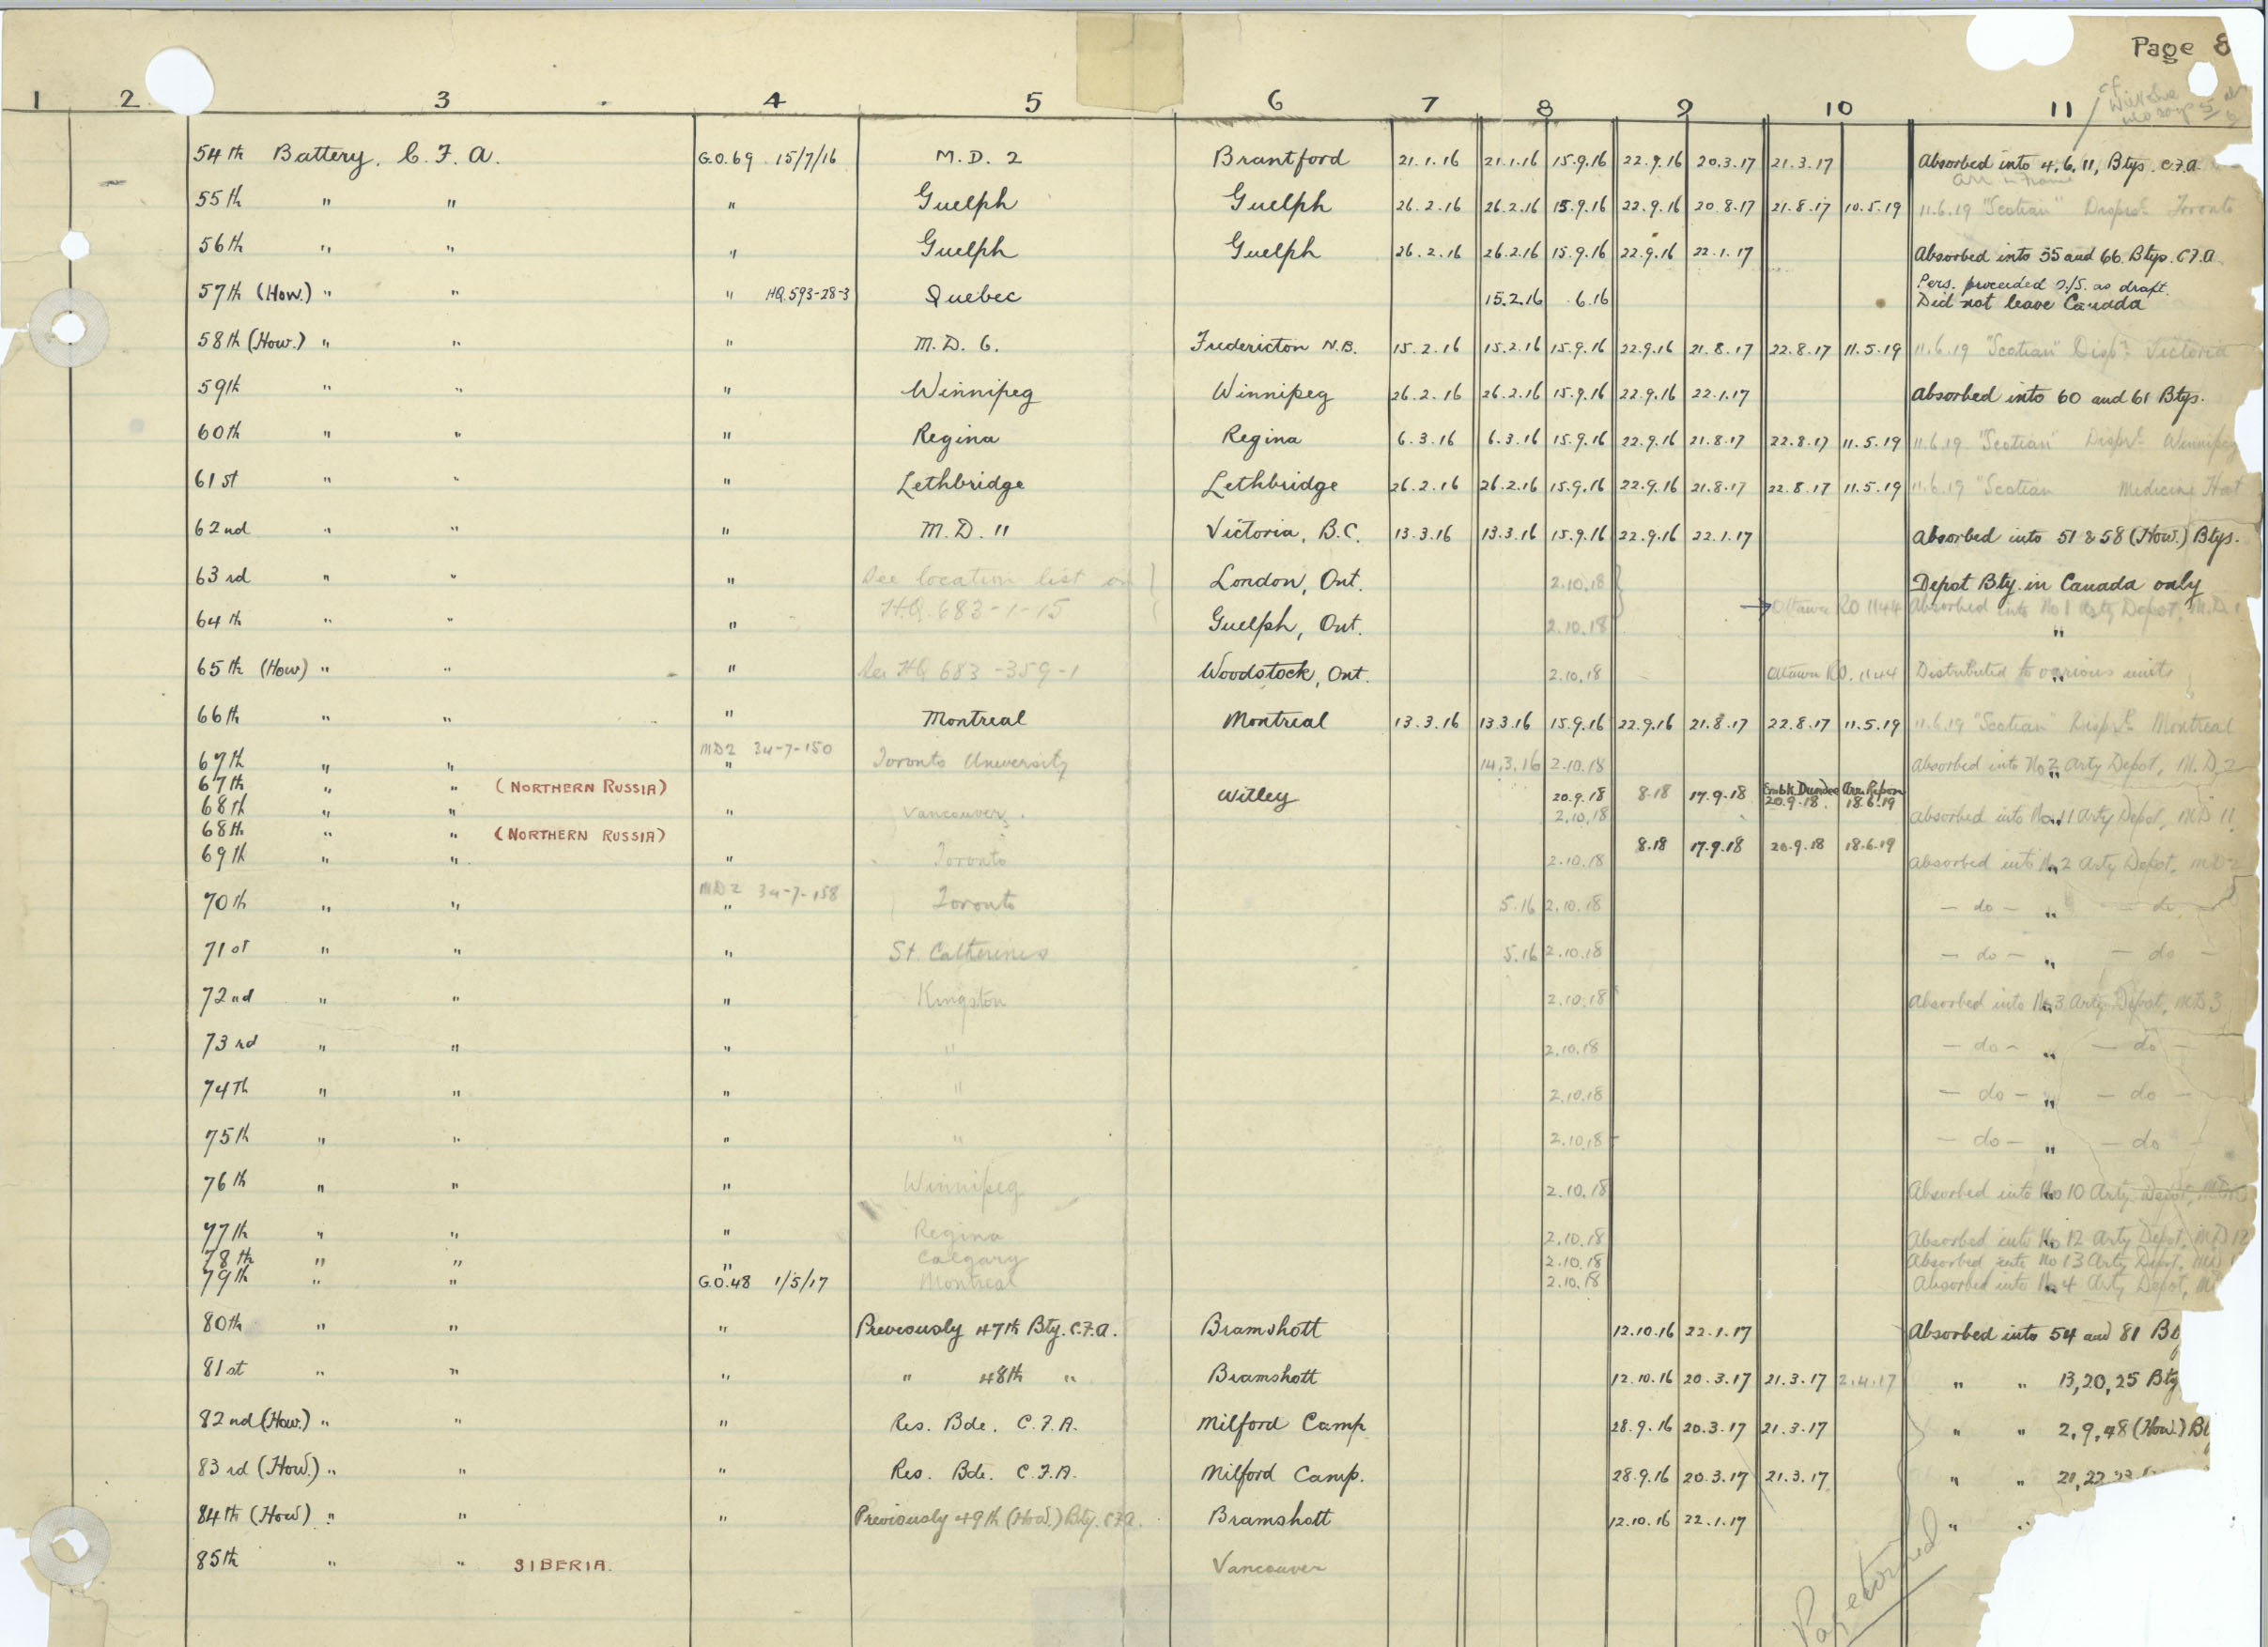 Page 8
1 2 3 4 5 6 7 8 9 10 11
54th Battery, C. F. A. G.O. 69 15/7/16 M. D. 2 Brantford 21.1.16 21.1.16 15.9.16 22.9.16 20.3.17 21.3.17 Absorbed into 4, 6, 11, Btys. C.F.A.
arr in France
55th " " " Guelph Guelph 26.2.16 26.2.16 15.9.16 22.9.16 20.8.17 21.8.17 10.5.19 11.6.19 "Scotian" Dispsl Toronto
56th " " " Guelph Guelph 26.2.16 26.2.16 15.9.16 22.9.16 22.1.17 Absorbed into 55 and 66 Btys. C.F.A.
57th (How.) " " " HQ. 593-28-3 Quebec 15.2.16 6.16 Pers. proceeded O/S. as draft.
Did not leave Canada
58th (How.) " " " M. D. 6. Fredericton N.B. 15.2.16 15.2.16 15.9.16 22.9.16 21.8.17 22.8.17 11.5.19 11.6.19 "Scotian" Dispsl Victoria
59th " " " Winnipeg Winnipeg 26.2.16 26.2.16 15.9.16 22.9.16 22.1.17 Absorbed into 60 and 61 Btys.
60th " " " Regina Regina 6.3.16 6.3.16 15.9.16 22.9.16 21.8.17 22.8.17 11.5.19 11.6.19 "Scotian" Dispsl Winnipeg
61st " " " Lethbridge Lethbridge 26.2.16 26.2.16 15.9.16 22.9.16 21.8.17 22.8.17 11.5.19 11.6.19 "Scotian Medicine Hat
62nd " " " M. D. 11 Victoria, B.C. 13.3.16 13.3.16 15.9.16 22.9.16 22.1.17 Absorbed into 51 & 58 (How.) Btys.
63rd " " " See location list on London, Ont. 2.10.18 Depot Bty. in Canada only
H.Q. 683-1-15 Ottawa RO 1144 Absorbed into No 1 Arty Depot, M.D. 1
64th " " " Guelph, Ont. 2.10.18 "
65th (How) " " " See HQ 683-359-1 Woodstock, Ont. 2.10.18 Ottawa RO. 1144 Distributed to various units "
66th " " " Montreal Montreal 13.3.16 13.3.16 15.9.16 22.9.16 21.8.17 22.8.17 11.5.19 11.6.19 "Scotian" Dispsl Montreal
MD2 34-7-150
67th " " " Toronto University 14.3.16 2.10.18 Absorbed into No 2 Arty Depot, M.D. 2
67th " " (NORTHERN RUSSIA) Witley 20.9.18 8.18 17.9.18 Embk Dundee 20.9.18 18.6.19
68th " " " Vancouver. 2.10.18 absorbed into No 11 Arty Depot, MD 11
68th " " (NORTHERN RUSSIA) 8.18 17.9.18 20.9.18 18.6.19
69th " " " Toronto 2.10.18 absorbed into No 2 Arty Depot, MD 2
MD2 34-7-158
70th " " " Toronto 5.16 2.10.18 - do - " - do -
71st " " " St Catherines 5.16 2.10.18 - do - " - do -
72nd " " " Kingston 2.10.18 Absorbed into No 3 Arty Depot, MD 3
73rd " " " " 2.10.18 - do - " - do -
74th " " " " 2.10.18 - do - " - do -
75th " " " " 2.10.18 - do - " - do -
76th " " " Winnipeg 2.10.18 Absorbed into No 10 Arty Depot,
77th " " " Regina 2.10.18 Absorbed into No 12 Arty Depot, MD 12
78th " " " Calgary 2.10.18 Absorbed into No 13 Arty Depot, MD
79th " " G.O. 48 1/5/17 Montreal 2.10.18 Absorbed into No 4 Arty Depot, M
80th " " " Previously 47th Bty. C.F.A. Bramshott 12.10.16 22.1.17 Absorbed into 54 and 81 B
81st " " " " 48th " Bramshott 12.10.16 20.3.17 21.3.17 2.4.17 " " 13, 20, 25 Bty
82nd (How.) " " " Res. Bde. C.F.A. Milford Camp 28.9.16 20.3.17 21.3.17 " " 2, 9, 48 (How.) B
83rd (How.) " " " Res. Bde. C.F.A. Milford Camp. 28.9.16 20.3.17 21.3.17 " " 21, 22
84th (How) " " " Previously 49th (How.) Bty. C.F.A. Bramshott 12.10.16 22.1.17 " "
85th " " SIBERIA. Vancouver
Page torned